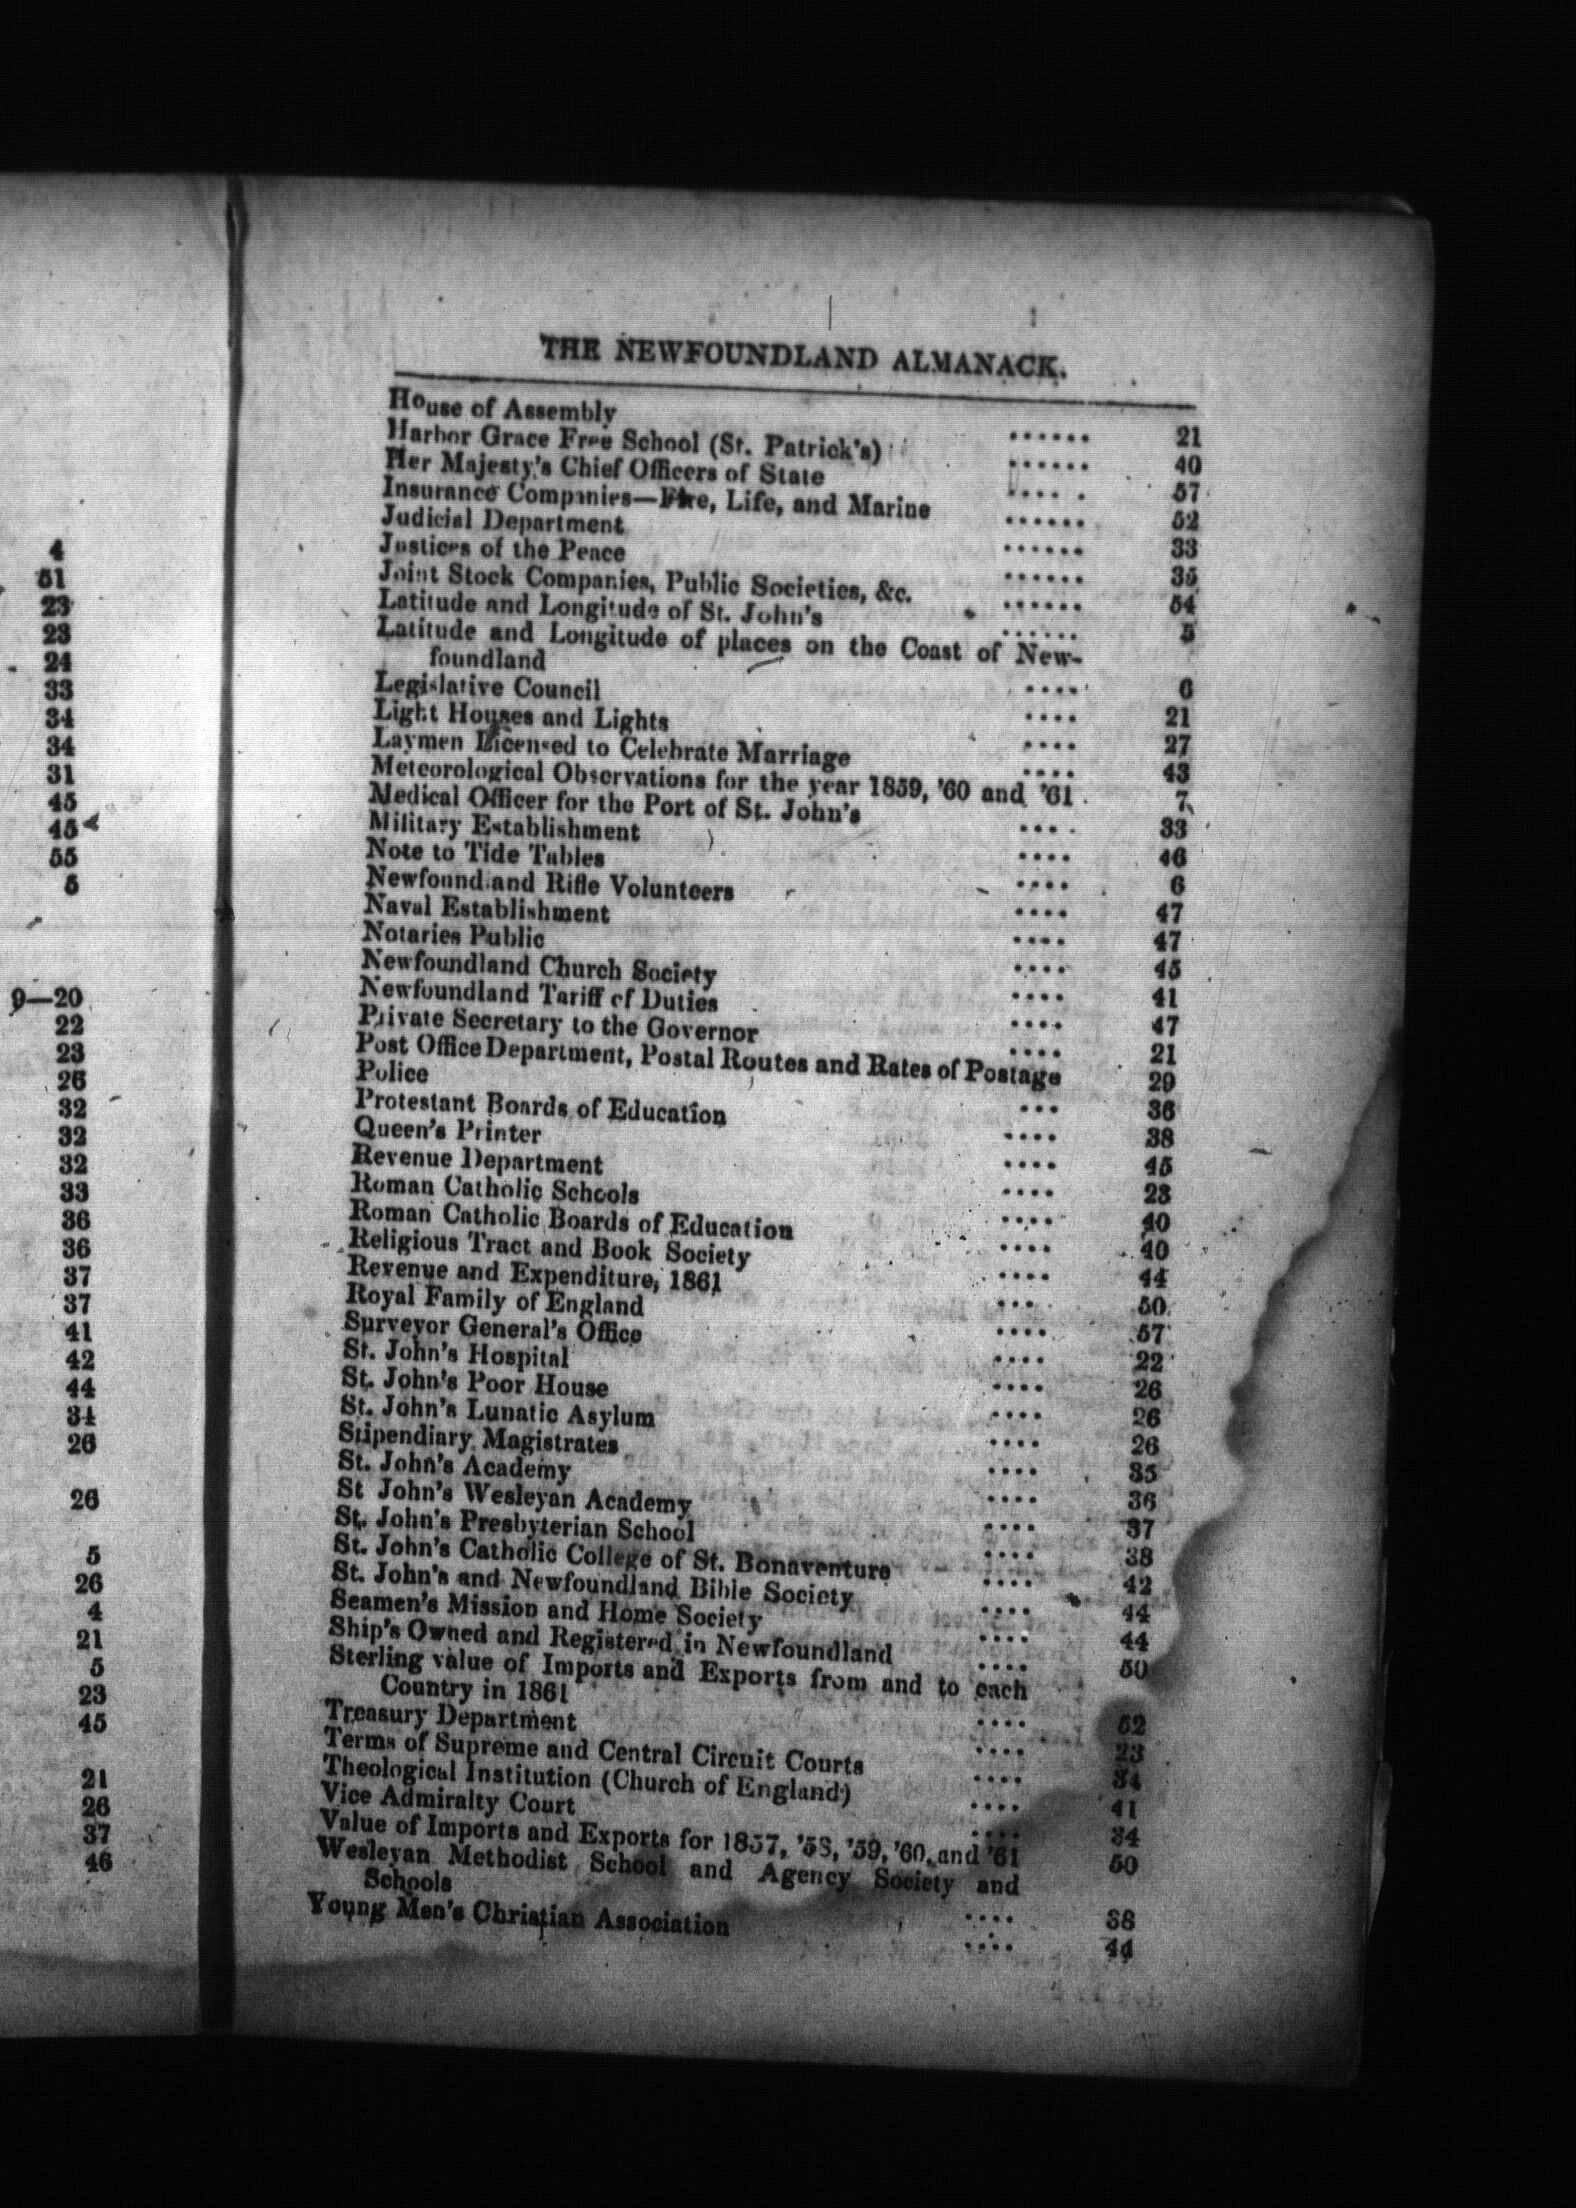 4
51
23
23
24
33
34
34
31
45
45
55
5
9—20
22
23
26
32
32
32
33
36
36
37
37
41
42
44
34
26
26
5
26
4
21
5
23
45
21
26
37
46
THE NEWFOUNDLAND ALMANACK.
House of Assembly ...... 21
Harbor Grace Free School (St. Patrick's) ...... 40
Her Majesty's Chief Officers of State .... . 57
Insurance Companies—Fire, Life, and Marine ...... 52
Judicial Department ...... 33
Justices of the Peace ...... 35
Joint Stock Companies, Public Societies, &c. ...... 54
Latitude and Longitude of St. John's ...... 5
Latitude and Longitude of places on the Coast of New-
foundland .... 6
Legislative Council .... 21
Light Houses and Lights .... 27
Laymen Licensed to Celebrate Marriage .... 43
Meteorological Observations for the year 1859, '60 and '61 7
Medical Officer for the Port of St. John's .... 33
Military Establishment .... 46
Note to Tide Tables .... 6
Newfoundland Rifle Volunteers .... 47
Naval Establishment .... 47
Notaries Public .... 45
Newfoundland Church Society .... 41
Newfoundland Tariff of Duties .... 47
Private Secretary to the Governor .... 21
Post Office Department, Postal Routes and Rates of Postage 29
Police ... 36
Protestant Boards of Education .... 38
Queen's Printer .... 45
Revenue Department .... 23
Roman Catholic Schools .... 40
Roman Catholic Boards of Education .... 40
Religious Tract and Book Society .... 44
Revenue and Expenditure, 1861 .... 50
Royal Family of England .... 57
Surveyor General's Office .... 22
St. John's Hospital .... 26
St. John's Poor House .... 26
St. John's Lunatic Asylum .... 26
Stipendiary Magistrates .... 35
St. John's Academy .... 36
St John's Wesleyan Academy .... 37
St. John's Presbyterian School .... 38
St. John's Catholic College of St. Bonaventure .... 42
St. John's and Newfoundland Bible Society .... 44
Seamen's Mission and Home Society .... 44
Ship's Owned and Registered in Newfoundland .... 50
Sterling value of Imports and Exports from and to each
Country in 1861 .... 52
Treasury Department .... 23
Terms of Supreme and Central Circuit Courts .... 34
Theological Institution (Church of England) .... 41
Vice Admiralty Court .... 34
Value of Imports and Exports for 1857, '58, '59, '60, and '61 50
Wesleyan Methodist School and Agency Society and
Schools .... 38
Young Men's Christian Association .... 44